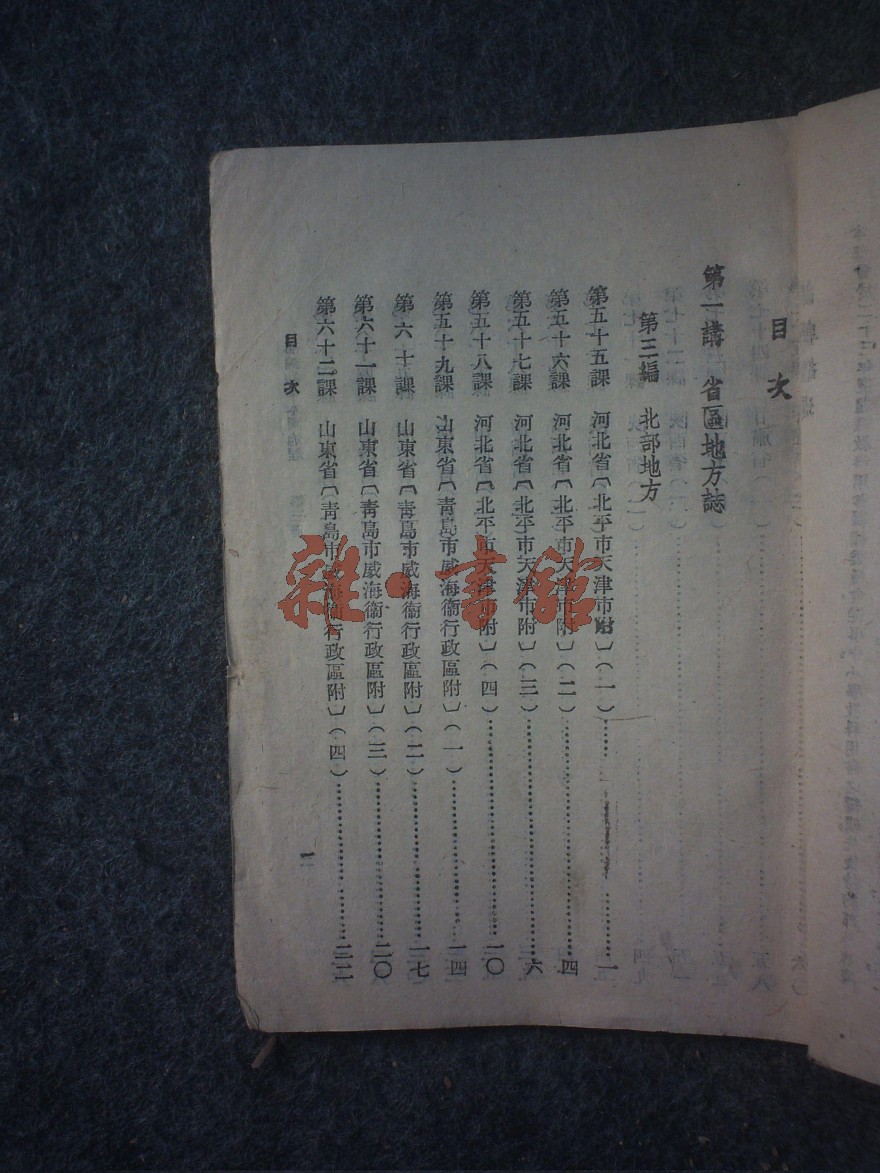 目次
第一講 省區地方誌
第三編 北部地方
第五十五課 河北省〔北平市天津市附〕(一)……一
第五十六課 河北省〔北平市天津市附〕(二)……四
第五十七課 河北省〔北平市天津市附〕(三)……六
第五十八課 河北省〔北平市天津市附〕(四)……一〇
第五十九課 山東省〔青島市威海衞行政區附〕(一)……一四
第六十課 山東省〔青島市威海衞行政區附〕(二)……一七
第六十一課 山東省〔青島市威海衞行政區附〕(三)……二〇
第六十二課 山東省〔青島市威海衞行政區附〕(四)……二二
目次
一
雜·書館